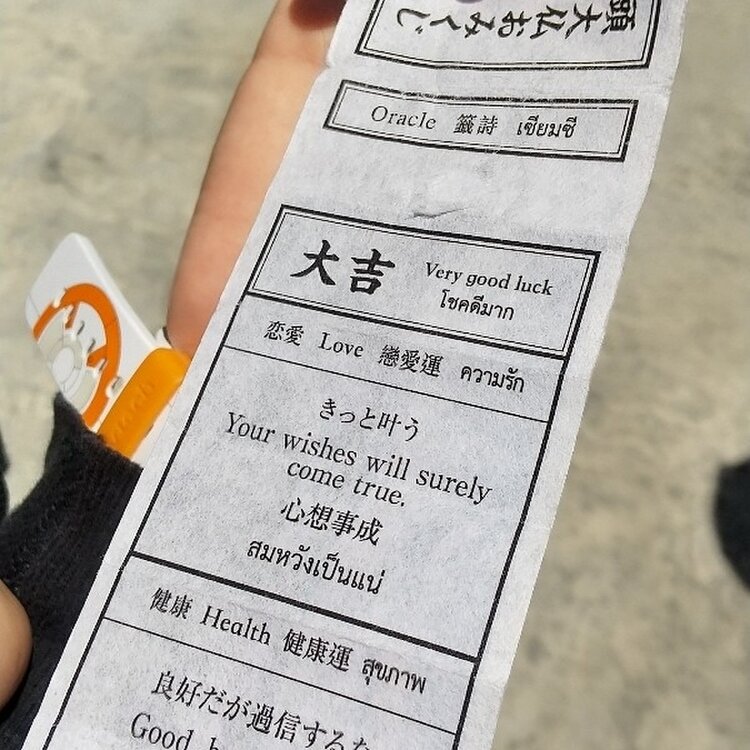 頭大仏おみくじ
Oracle 籤詩 เซียมซี
大吉 Very good luck
โชคดีมาก
恋愛 Love 戀愛運 ความรัก
きっと叶う
Your wishes will surely
come true.
心想事成
สมหวังเป็นแน่
健康 Health 健康運 สุขภาพ
良好だが過信するな
Good